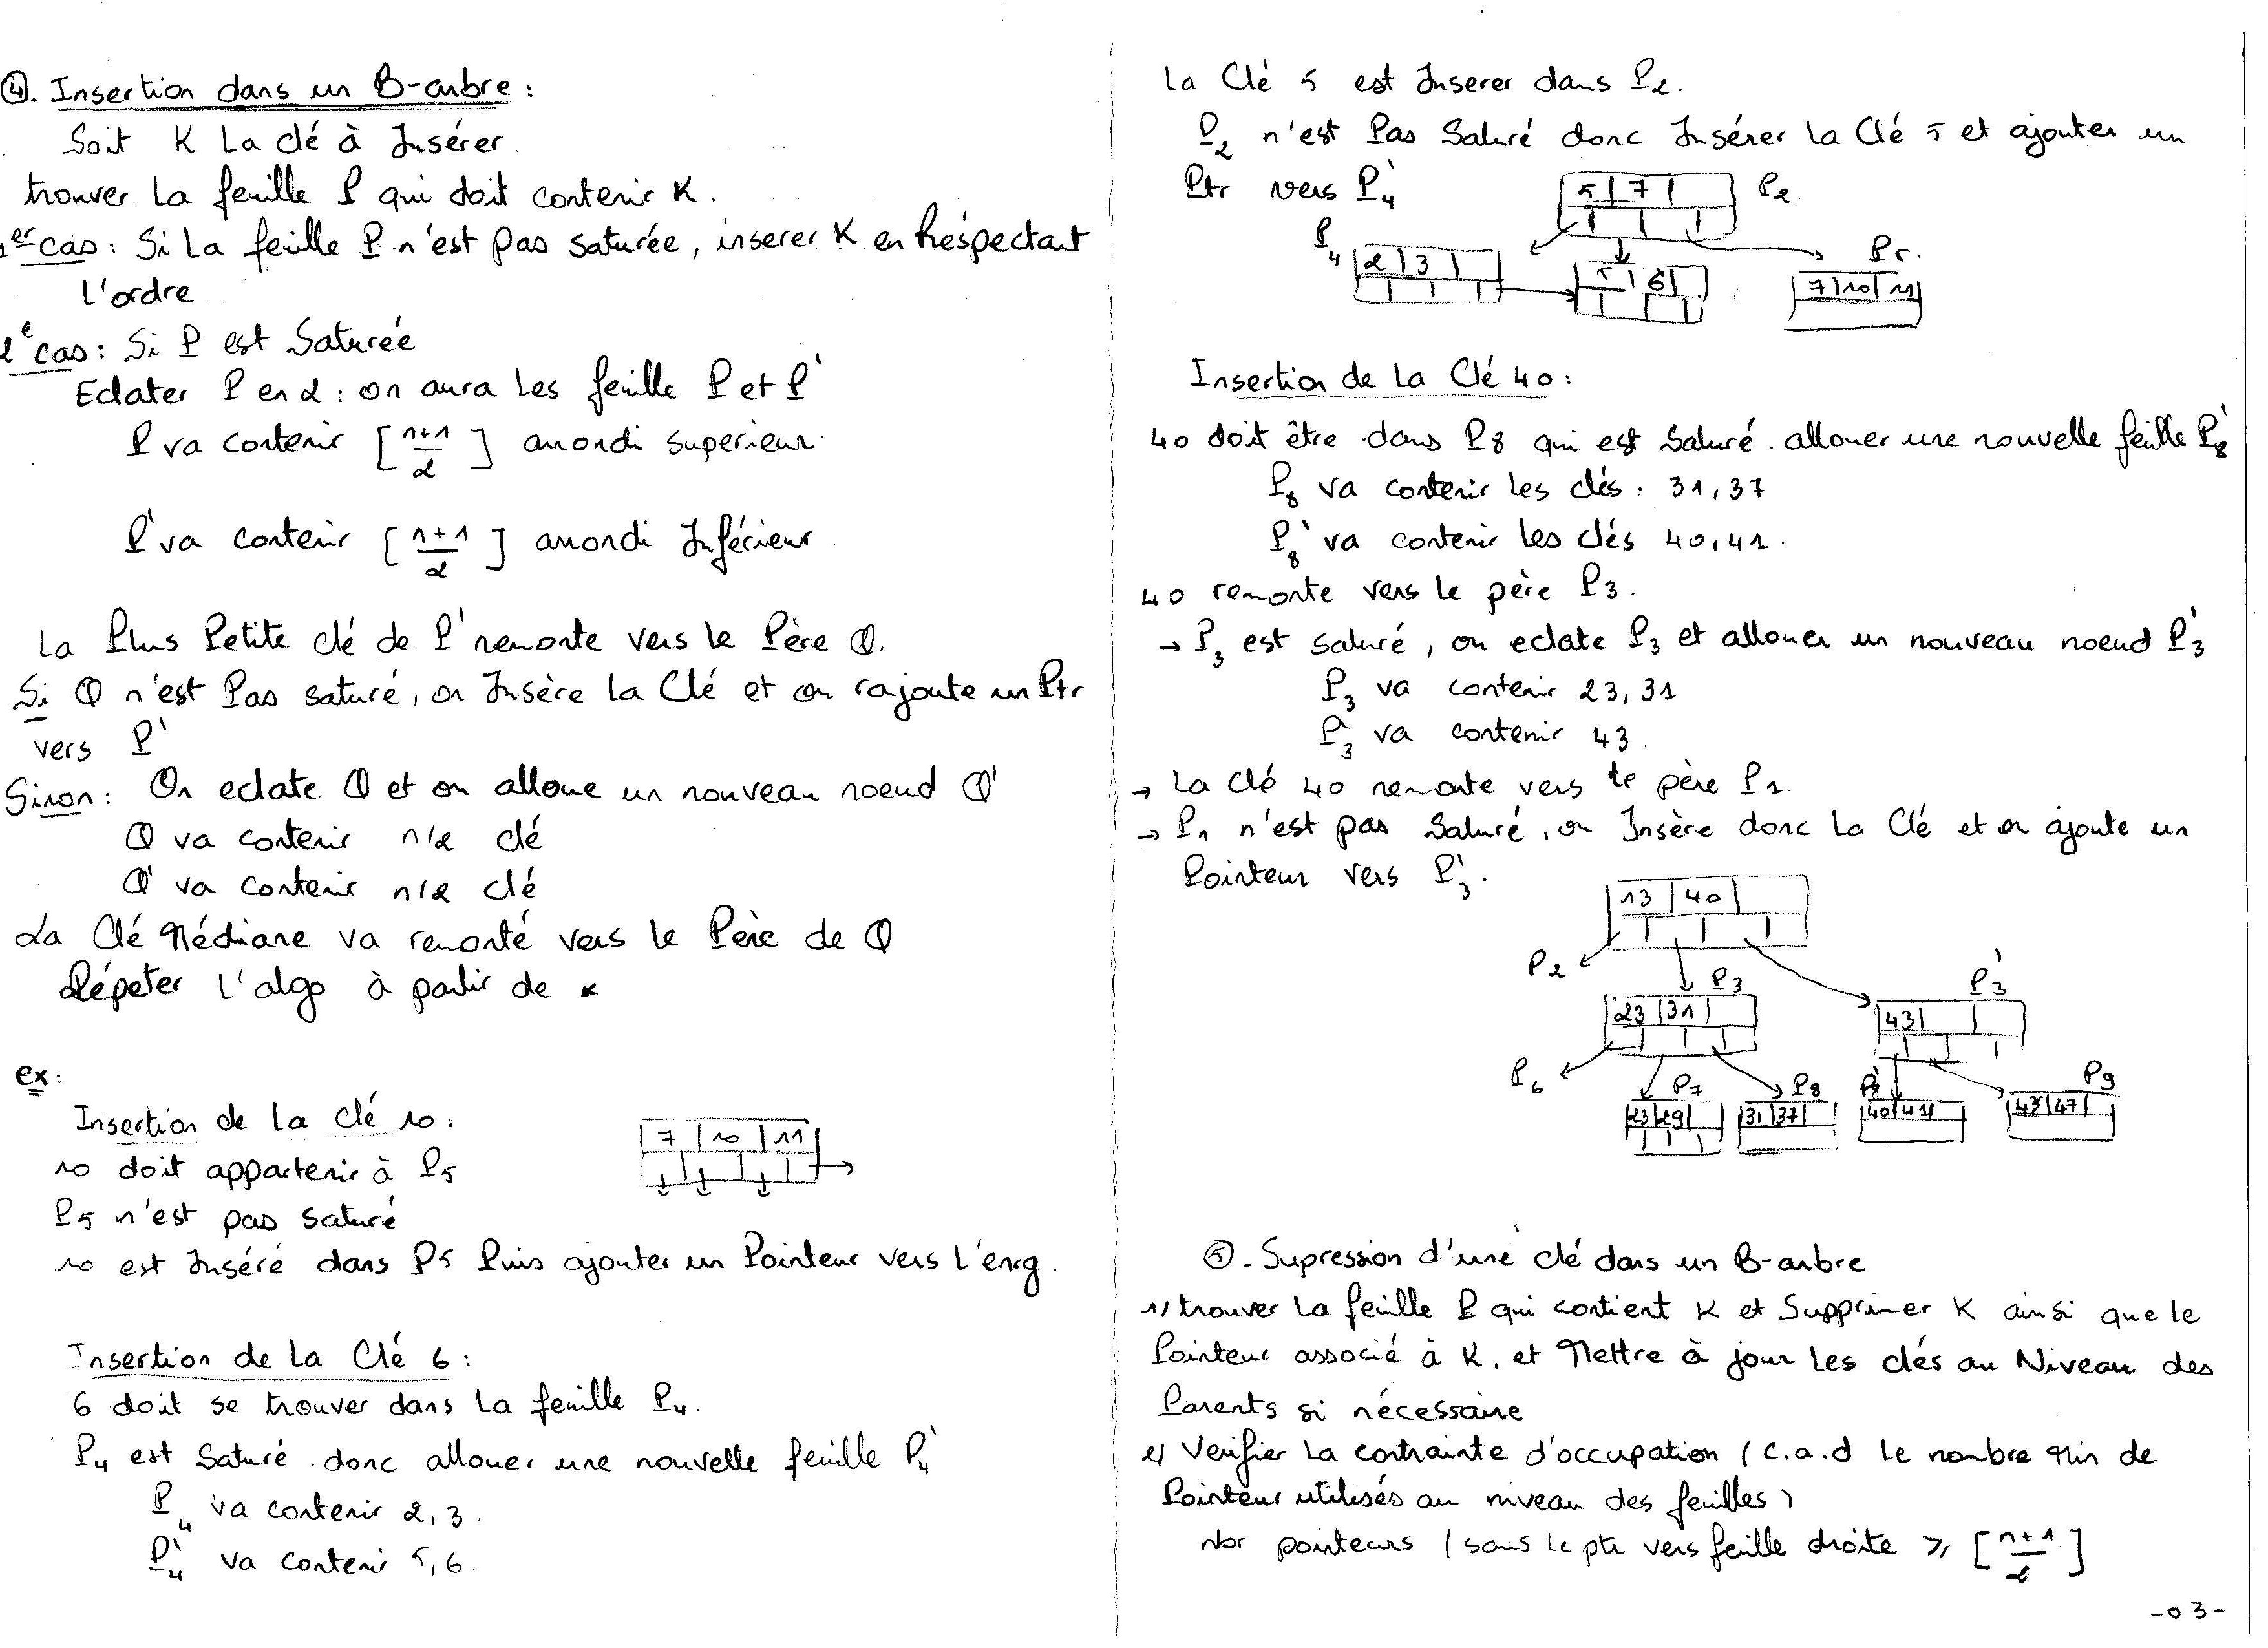 ④. Insertion dans un B-arbre :
Soit K La clé à Insérer.
trouver La feuille P qui doit contenir K.
1er cas : Si La feuille P n'est pas saturée, inserer K en Respectant
L'ordre
2e cas : Si P est Saturée
Eclater P en 2 : on aura Les feuille P et P'
P va contenir [n+1/2] arrondi superieur.
P' va contenir [n+1/2] arrondi Inférieur.
La Plus Petite clé de P' remonte vers le Père Q.
Si Q n'est Pas saturé, on Insère La Clé et on rajoute un Ptr
vers P'
Sinon : On eclate Q et on alloue un nouveau noeud Q'
Q va contenir n/2 clé
Q' va contenir n/2 clé
La Clé Médiane va remonté vers le Père de Q
Répeter L'algo à partir de *
ex :
Insertion de La clé 10 :
10 doit appartenir à P5
P5 n'est pas saturé
7 10 11
10 est Inséré dans P5 Puis ajouter un Pointeur vers L'enrg.
Insertion de La Clé 6 :
6 doit se trouver dans La feuille P4.
P4 est Saturé donc allouer une nouvelle feuille P4'
P4 va contenir 2, 3.
P4' va contenir 5, 6.
La Clé 5 est Inserer dans P2.
P2 n'est Pas Saturé donc Insérer La Clé 5 et ajouter un
Ptr vers P4'
5 7 P2
P4 2 3
5 6
P5
7 10 11
Insertion de La Clé 40 :
40 doit être dans P8 qui est Saturé. allouer une nouvelle feuille P8'
P8 va contenir les clés : 31, 37
P8' va contenir Les clés 40, 41.
40 remonte vers le père P3.
→ P3 est saturé, on eclate P3 et allouer un nouveau noeud P3'
P3 va contenir 23, 31
P3' va contenir 43.
→ La Clé 40 remonte vers le père P1.
→ P1 n'est pas Saturé, on Insère donc La Clé et on ajoute un
Pointeur vers P3'.
13 40
P2 P3 P3'
23 31
43
P6 P7 P8 P8' P9
23 29
31 37
40 41
43 47
⑤. Supression d'une clé dans un B-arbre
1/ trouver La feuille P qui contient K et Supprimer K ainsi que le
Pointeur associé à K, et Mettre à jour Les clés au Niveau des
Parents si nécessaire
2/ Verifier La contrainte d'occupation ( c.a.d Le nombre Min de
Pointeur utilisés au niveau des feuilles )
Nbr pointeurs ( sans le ptr vers feuille droite ≥ [n+1/2]
-03-